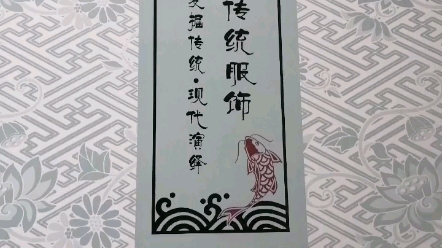 传统服饰
掘传统·现代演绎